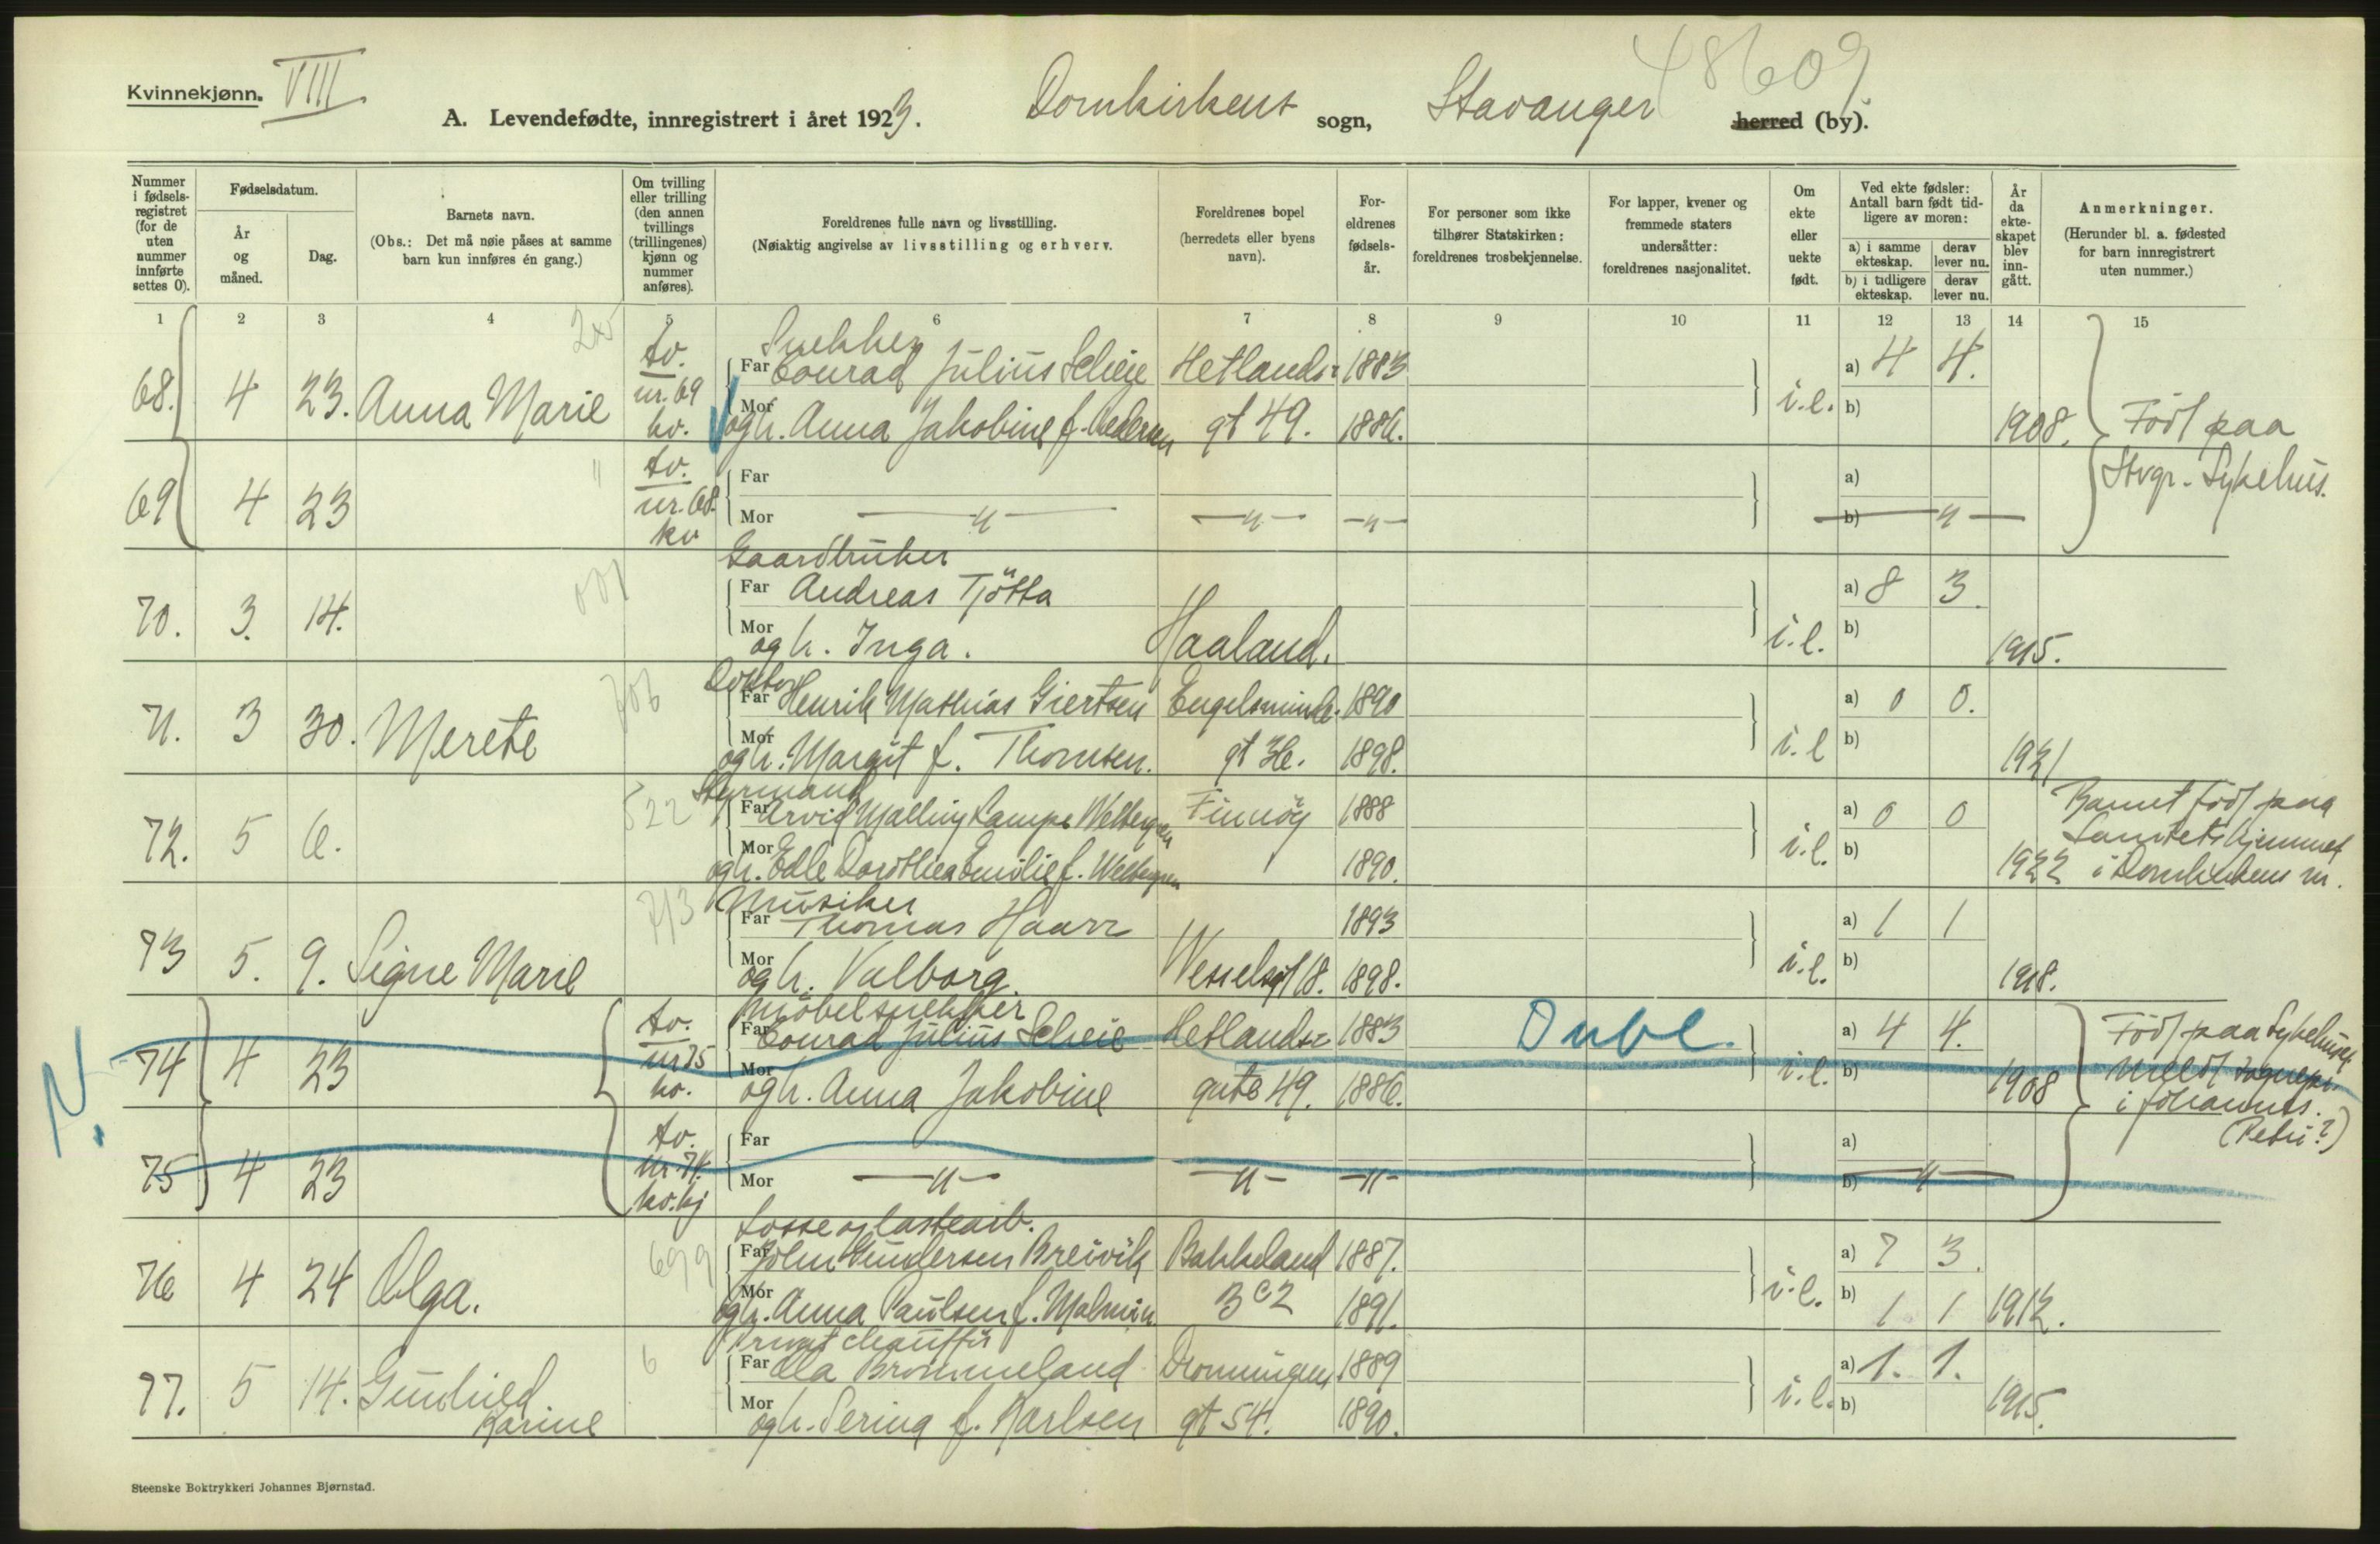 Kvinnekjønn. VIII
48609
A. Levendefødte, innregistrert i året 1923. Domkirkens sogn, Stavanger herred (by).
Nummer i fødsels-registret (for de uten nummer innførte settes 0).
Fødselsdatum.
År og måned.
Dag.
Barnets navn.
(Obs.: Det må nøie påses at samme barn kun innføres én gang.)
Om tvilling eller trilling (den annen tvillings (trillingenes) kjønn og nummer anføres).
Foreldrenes fulle navn og livsstilling.
(Nøiaktig angivelse av livsstilling og erhverv.
Foreldrenes bopel (herredets eller byens navn).
For-eldrenes fødsels-år.
For personer som ikke tilhører Statskirken: foreldrenes trosbekjennelse.
For lapper, kvener og fremmede staters undersåtter: foreldrenes nasjonalitet.
Om ekte eller uekte født.
Ved ekte fødsler: Antall barn født tid-ligere av moren:
a) i samme ekteskap. derav lever nu.
b) i tidligere ekteskap. derav lever nu.
År da ekte-skapet blev inn-gått.
Anmerkninger.
(Herunder bl. a. fødested for barn innregistrert uten nummer.)
1 2 3 4 5 6 7 8 9 10 11 12 13 14 15
Snekker
68. 4 23. Anna Marie tv. nr. 69 kv. Far Conrad Julius Scheie Hetlands- 1883 i.e. a) 4 4.
Mor og h. Anna Jakobine f. Pedersen gt 49. 1886. b) 1908. Födt paa
69 4 23 " tv. nr. 68. kv Far a) Stvgr. Sykehus.
Mor —"— —"— —"— b) —"—
Gaardbruker
70. 3. 14. 001 Far Andreas Tjötta a) 8 3.
Mor og h. Inga. Haaland. i.e. b) 1915.
Doktor
71. 3 30. Merete 706 Far Henrik Mathias Giertsen Engelsminde- 1890 a) 0 0.
Mor og h. Margit f. Thomsen. gt 36. 1898. i.e b) 1921
Styrmand
72. 5 6. 522 Far Arvid Malling Kampe Welbergsen Finnöy 1888 a) 0 0 Barnet födt paa
Mor og h. Edle Dorothea Emilie f. Welbergsen 1890. i.e. b) 1922 Sanitetshjemmet i Domkirkens m.
Musiker
73 5. 9. Signe Marie 713 Far Thomas Haarr 1893 a) 1 1
Mor og h. Valborg. Wesselsgt 18. 1898. i.e. b) 1918.
Möbelsnekker
N.
74 4 23 tv. nr 75 kv. Far Conrad Julius Scheie Hetlands- 1883 Dubl. a) 4 4. Födt paa Sykehuset
Mor og h. Anna Jakobine gate 49. 1886. i.e. b) 1908 meldt sognepr. i Johannes. (Petri?)
75 4 23 tv. nr. 74. kv.kj Far a)
Mor —"— —"— —"— b) —"—
Losse og lastearb.
76 4 24 Olga. 699 Far John Gundersen Breivik Bakkeland 1887. a) 7 3.
Mor og h. Anna Paulsen f. Malmin 3 c 2 1891. i.e. b) 1 1 1912.
Privat chauffür
77. 5 14. Gunhild Karine 6 Far Ola Brommeland Dronningens 1889 a) 1. 1.
Mor og h. Serina f. Karlsen gt 54. 1890. i.e. b) 1915.
Steenske Boktrykkeri Johannes Bjørnstad.